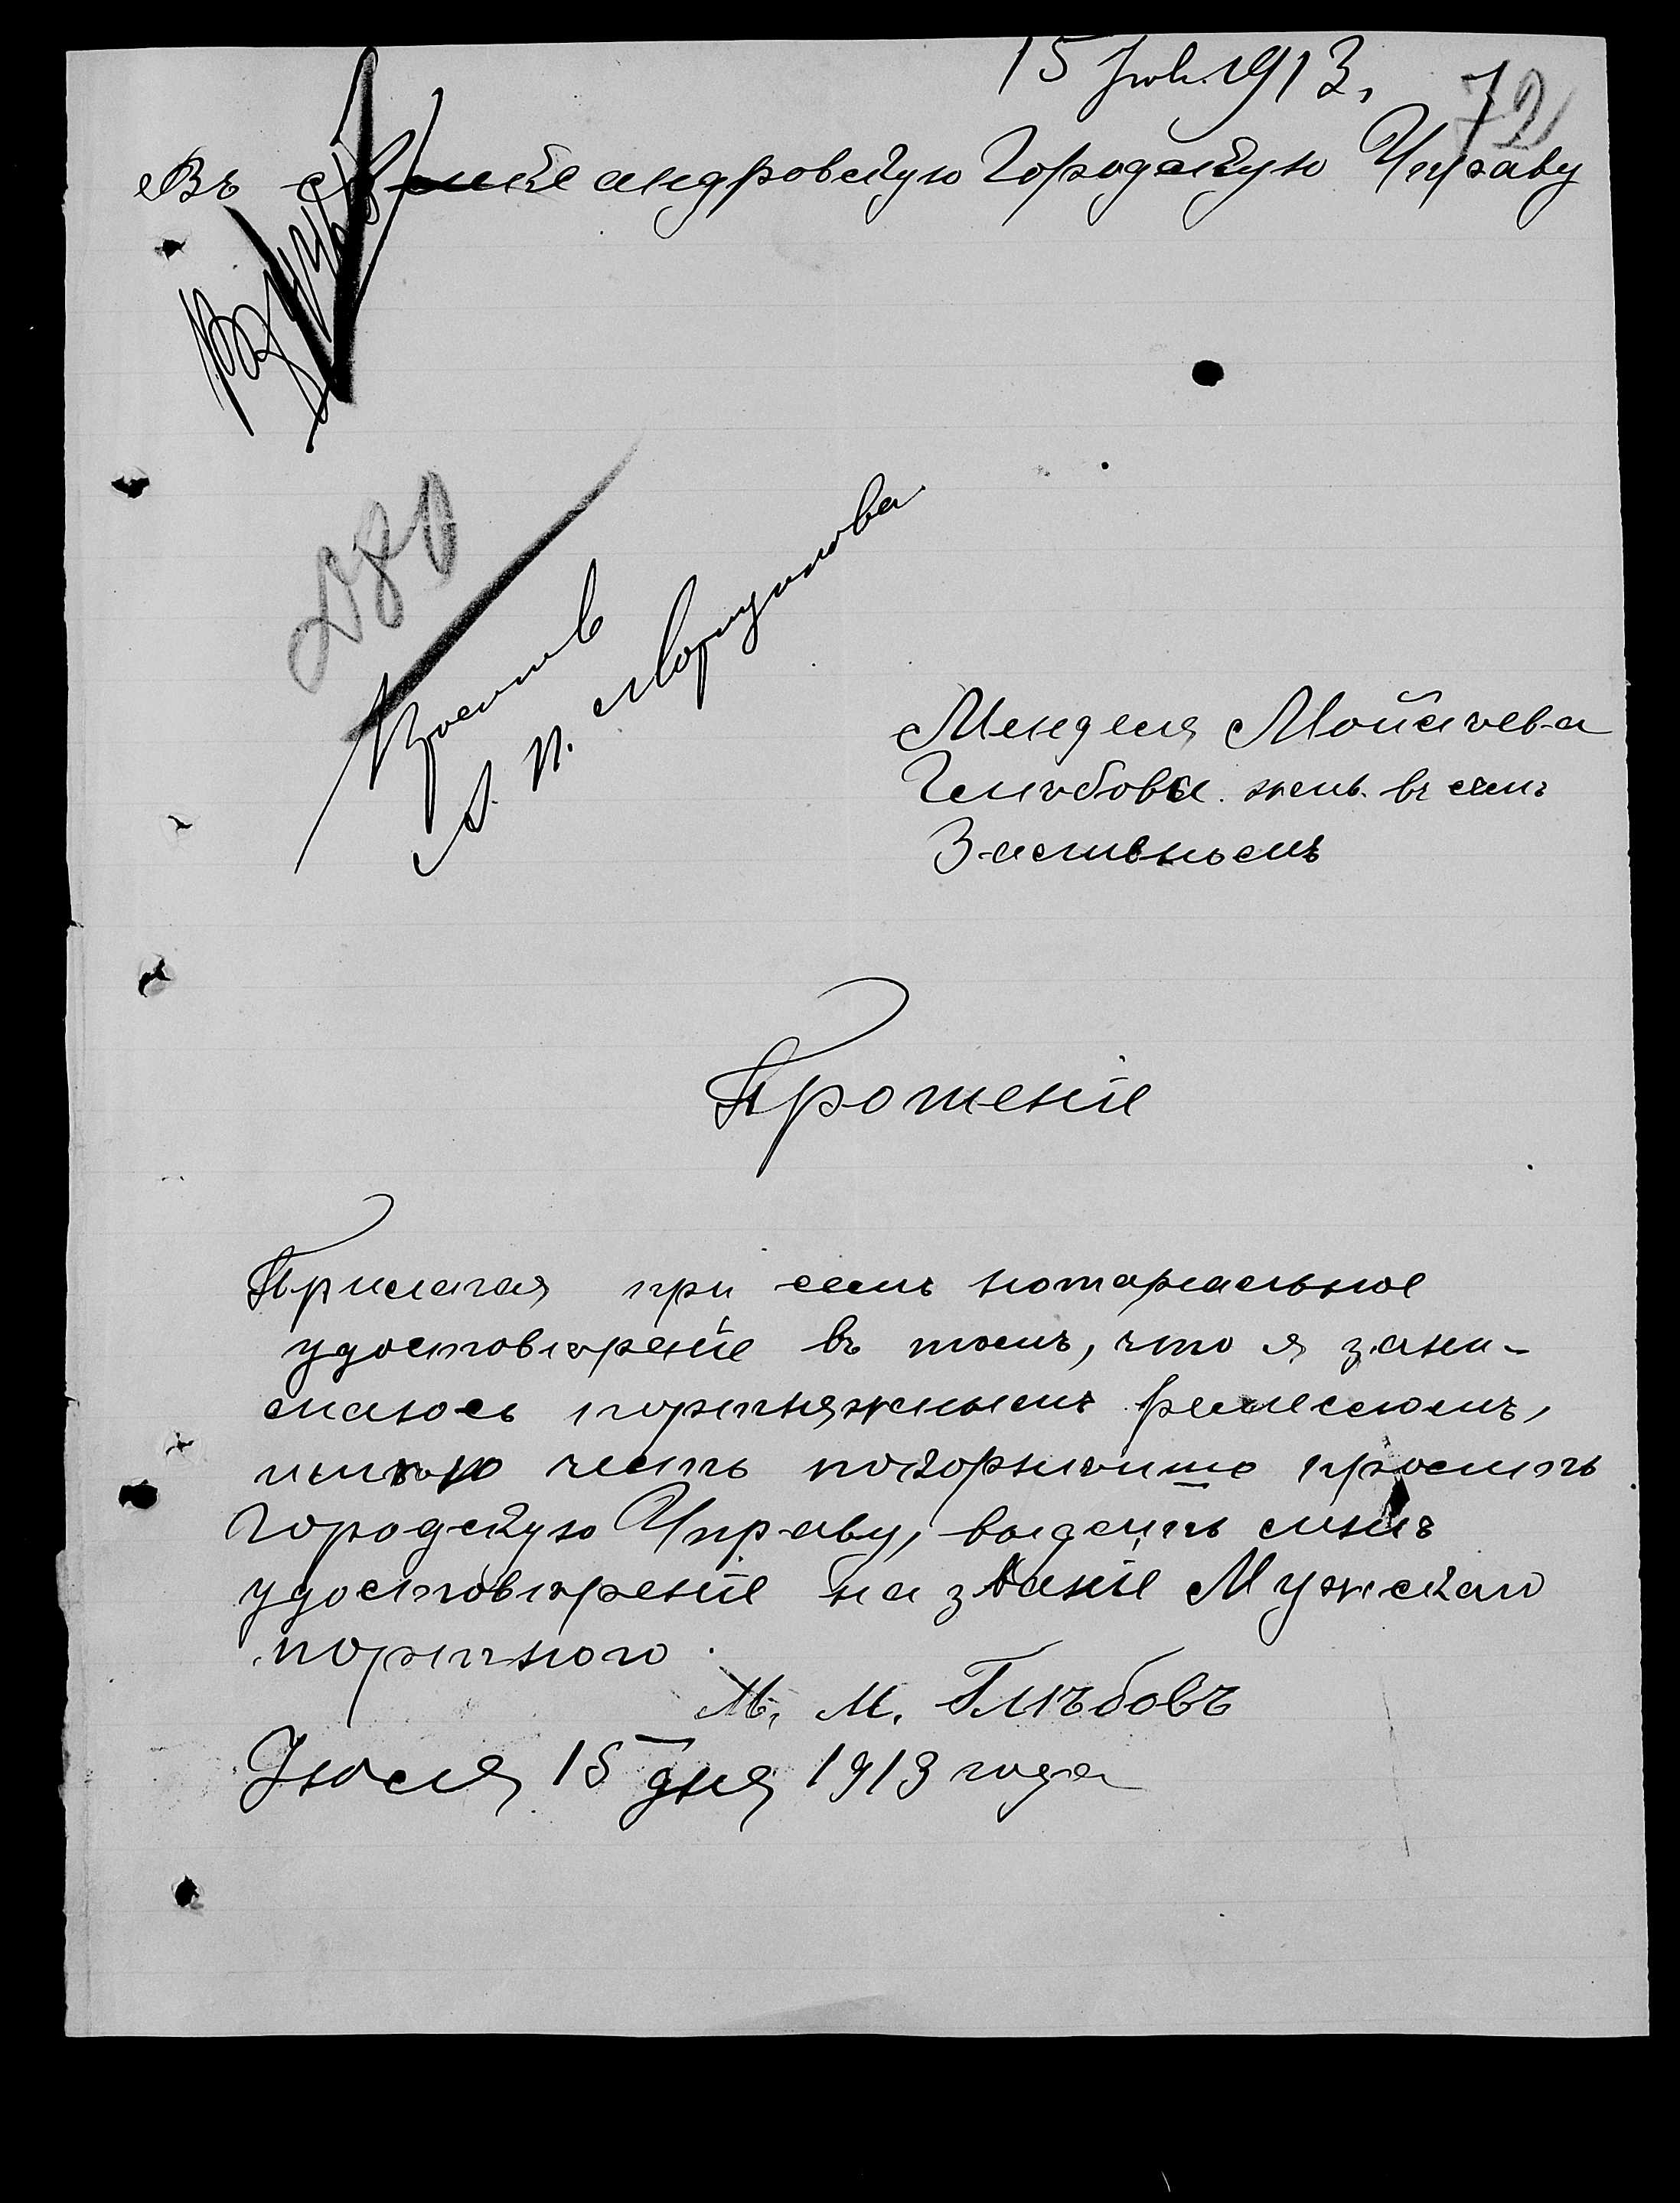 15 Іюл. 1913,
72
Въ Александровскую Городскую Управу
280
А. П. Моргунова
Менделя Мойсѣева
Глѣбова. жив. въ сел.
Прошеніе
Прилагая при семъ нотаріальное
удостовѣреніе въ томъ, что я зани-
маюсь портняжнымъ ремесломъ,
имѣю честь покорнѣише просить
Городскую Управу, выдать мнѣ
удостовѣреніе на званіе Мужскаго
портного.
М. М. Глѣбовъ
Іюля 15 дня 1913 года